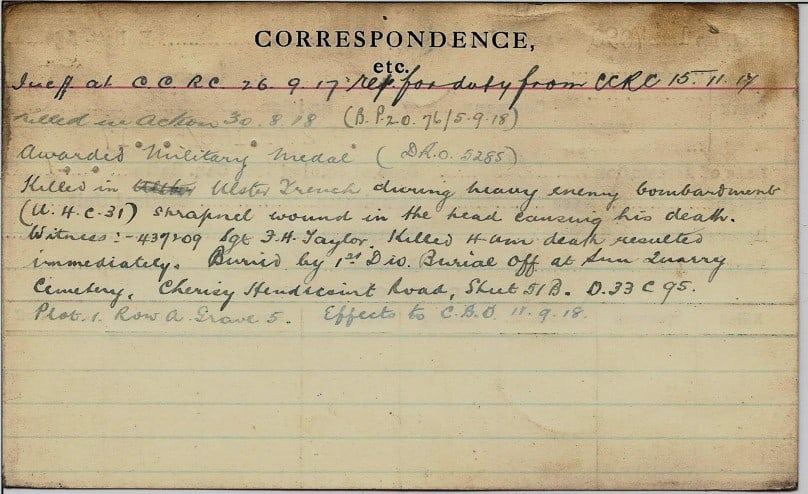 CORRESPONDENCE,
etc.
Ineff at C.C.R.C. 26.9.17. rep. for duty from CCRC 15.11.17
Killed in action 30.8.18 (B.P.20.76/5.9.18)
Awarded "Military Medal" (D.R.O. 5285)
Killed in Ulster Trench during heavy enemy bombardment
(U.4.C.31) shrapnel wound in the head causing his death.
Witness:- 437209 Sgt F.H. Taylor. Killed 4 am death resulted
immediately. Buried by 1st Div. Burial Off at Sun Quarry
Cemetery, Cherisy Hendecourt Road, Sheet 51B. O.33 C 95.
Plot. 1. Row A. Grave 5. Effects to C.B.O 11.9.18.